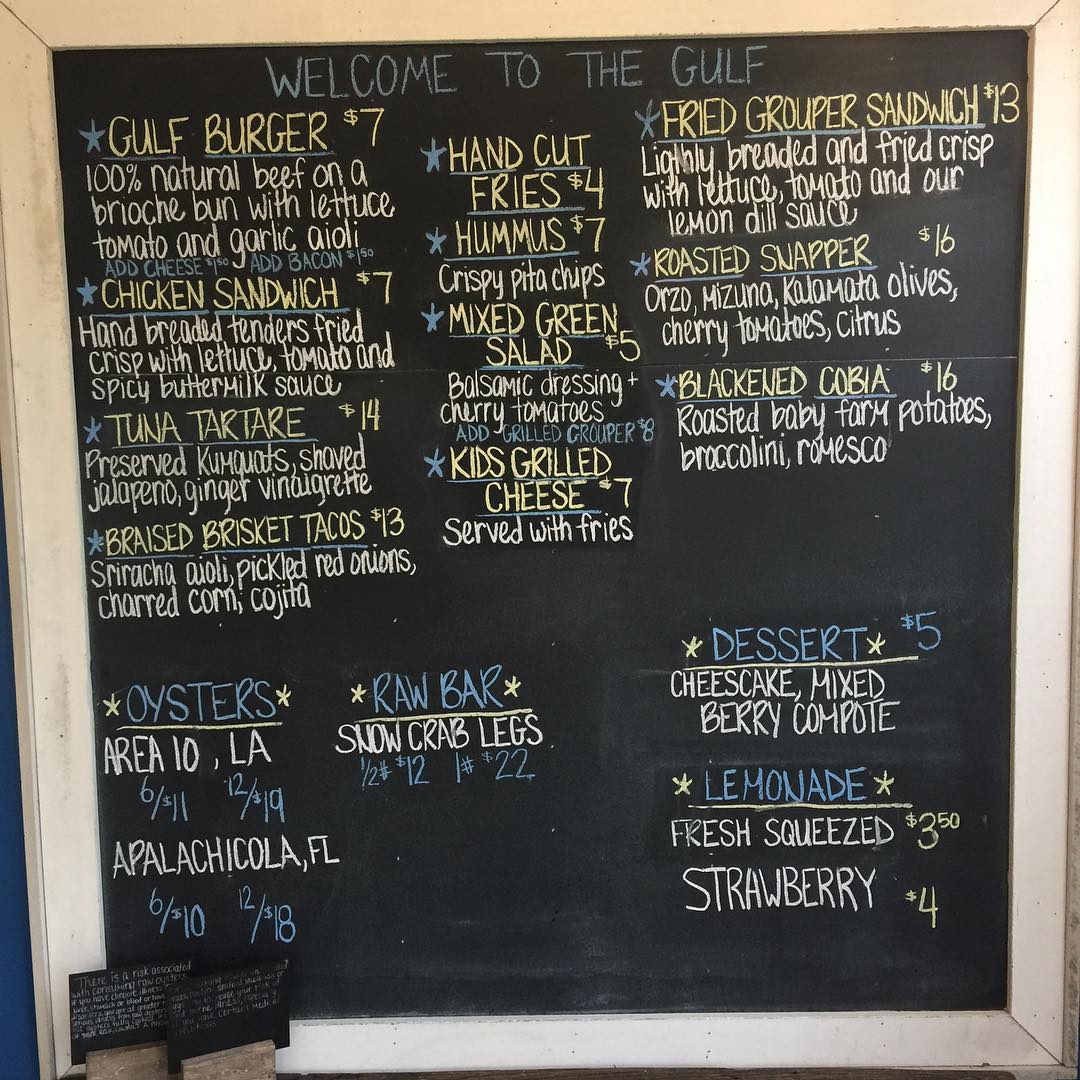 WELCOME TO THE GULF
GULF BURGER $7
100% natural beef on a
brioche bun with lettuce
tomato and garlic aioli
ADD CHEESE $1.50 ADD BACON $1.50
CHICKEN SANDWICH $7
Hand breaded tenders fried
crisp with lettuce, tomato and
spicy buttermilk sauce
TUNA TARTARE $14
Preserved Kumquats, shaved
jalapeno, ginger vinaigrette
BRAISED BRISKET TACOS $13
Sriracha aioli, pickled red onions,
charred corn, cojita
HAND CUT
FRIES $4
HUMMUS $7
Crispy pita chips
MIXED GREEN
SALAD $5
Balsamic dressing +
cherry tomatoes
ADD GRILLED GROUPER $8
KIDS GRILLED
CHEESE $7
Served with fries
FRIED GROUPER SANDWICH $13
Lighly breaded and fried crisp
with lettuce, tomato and our
lemon dill sauce
ROASTED SNAPPER $16
Orzo, Mizuna, Kalamata olives,
cherry tomatoes, citrus
BLACKENED COBIA $16
Roasted baby farm potatoes,
broccolini, romesco
*OYSTERS*
AREA 10, LA
6/$11 12/$19
APALACHICOLA, FL
6/$10 12/$18
*RAW BAR*
SNOW CRAB LEGS
1/2# $12 1# $22
*DESSERT* $5
CHEESCAKE, MIXED
BERRY COMPOTE
*LEMONADE*
FRESH SQUEEZED $3.50
STRAWBERRY $4
There is a risk associated
with consuming raw oysters.
if you have chronic illness